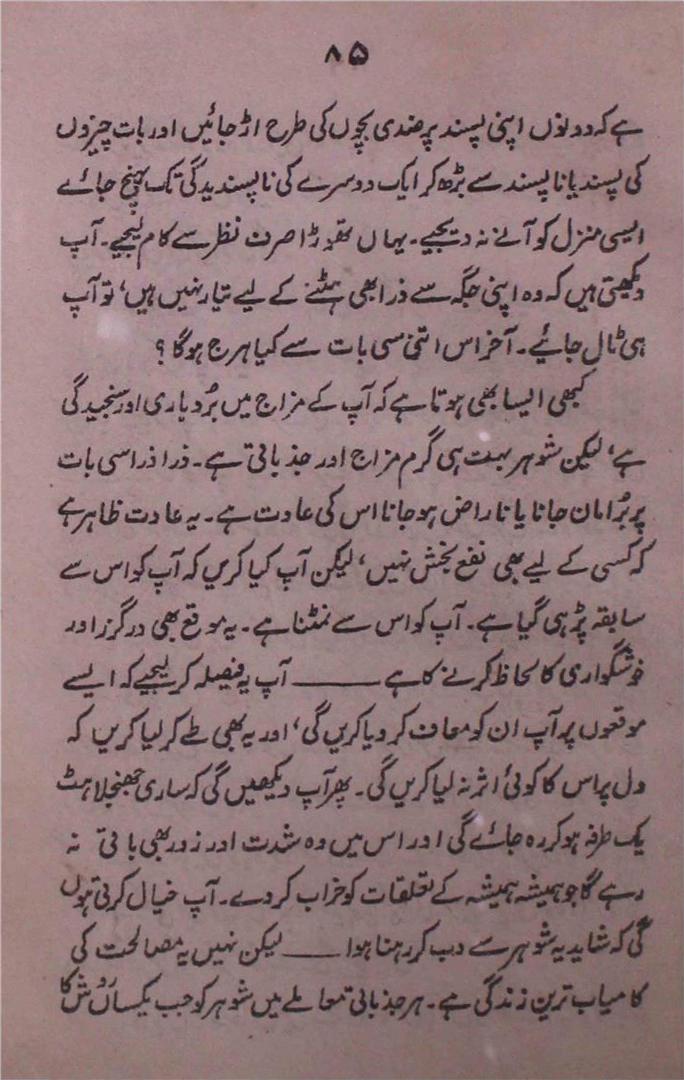 ۸۵
ہے کہ دونوں اپنی پسند پر ضدی بچوں کی طرح اڑ جائیں اور بات چیزوں
کی پسند یا ناپسند سے بڑھ کر ایک دوسرے کی ناپسندیدگی تک پہنچ جائے
ایسی منزل کو آنے نہ دیجیے۔ یہاں تھوڑا صرف نظر سے کام لیجیے۔ آپ
دیکھتی ہیں کہ وہ اپنی جگہ سے ذرا بھی ہٹنے کے لیے تیار نہیں ہیں، تو آپ
ہی ٹال جائیے۔ آخر اس اتنی سی بات سے کیا ہرج ہوگا ؟
کبھی ایسا بھی ہوتا ہے کہ آپ کے مزاج میں بُردباری اور سنجیدگی
ہے، لیکن شوہر بہت ہی گرم مزاج اور جذباتی ہے۔ ذرا ذرا سی بات
پر بُرا مان جانا یا ناراض ہو جانا اس کی عادت ہے۔ یہ عادت ظاہر ہے
کہ کسی کے لیے بھی نفع بخش نہیں، لیکن آپ کیا کریں کہ آپ کو اس سے
سابقہ پڑ ہی گیا ہے۔ آپ کو اس سے نمٹنا ہے۔ یہ موقع بھی درگزر اور
خوشگواری کا لحاظ کرنے کا ہے ــــــ آپ یہ فیصلہ کر لیجیے کہ ایسے
موقعوں پر آپ ان کو معاف کر دیا کریں گی، اور یہ بھی طے کر لیا کریں کہ
دل پر اس کا کوئی اثر نہ لیا کریں گی۔ پھر آپ دیکھیں گی کہ ساری جھنجلاہٹ
یک طرفہ ہو کر رہ جائے گی اور اس میں وہ شدت اور زور بھی باقی نہ
رہے گا جو ہمیشہ ہمیشہ کے تعلقات کو خراب کر دے۔ آپ خیال کرتی ہوں
گی کہ شاید یہ شوہر سے دب کر رہنا ہوا ــــــ لیکن نہیں یہ مصالحت کی
کامیاب ترین زندگی ہے۔ ہر جذباتی معاملے میں شوہر کو جب یکساں رَوِش کا